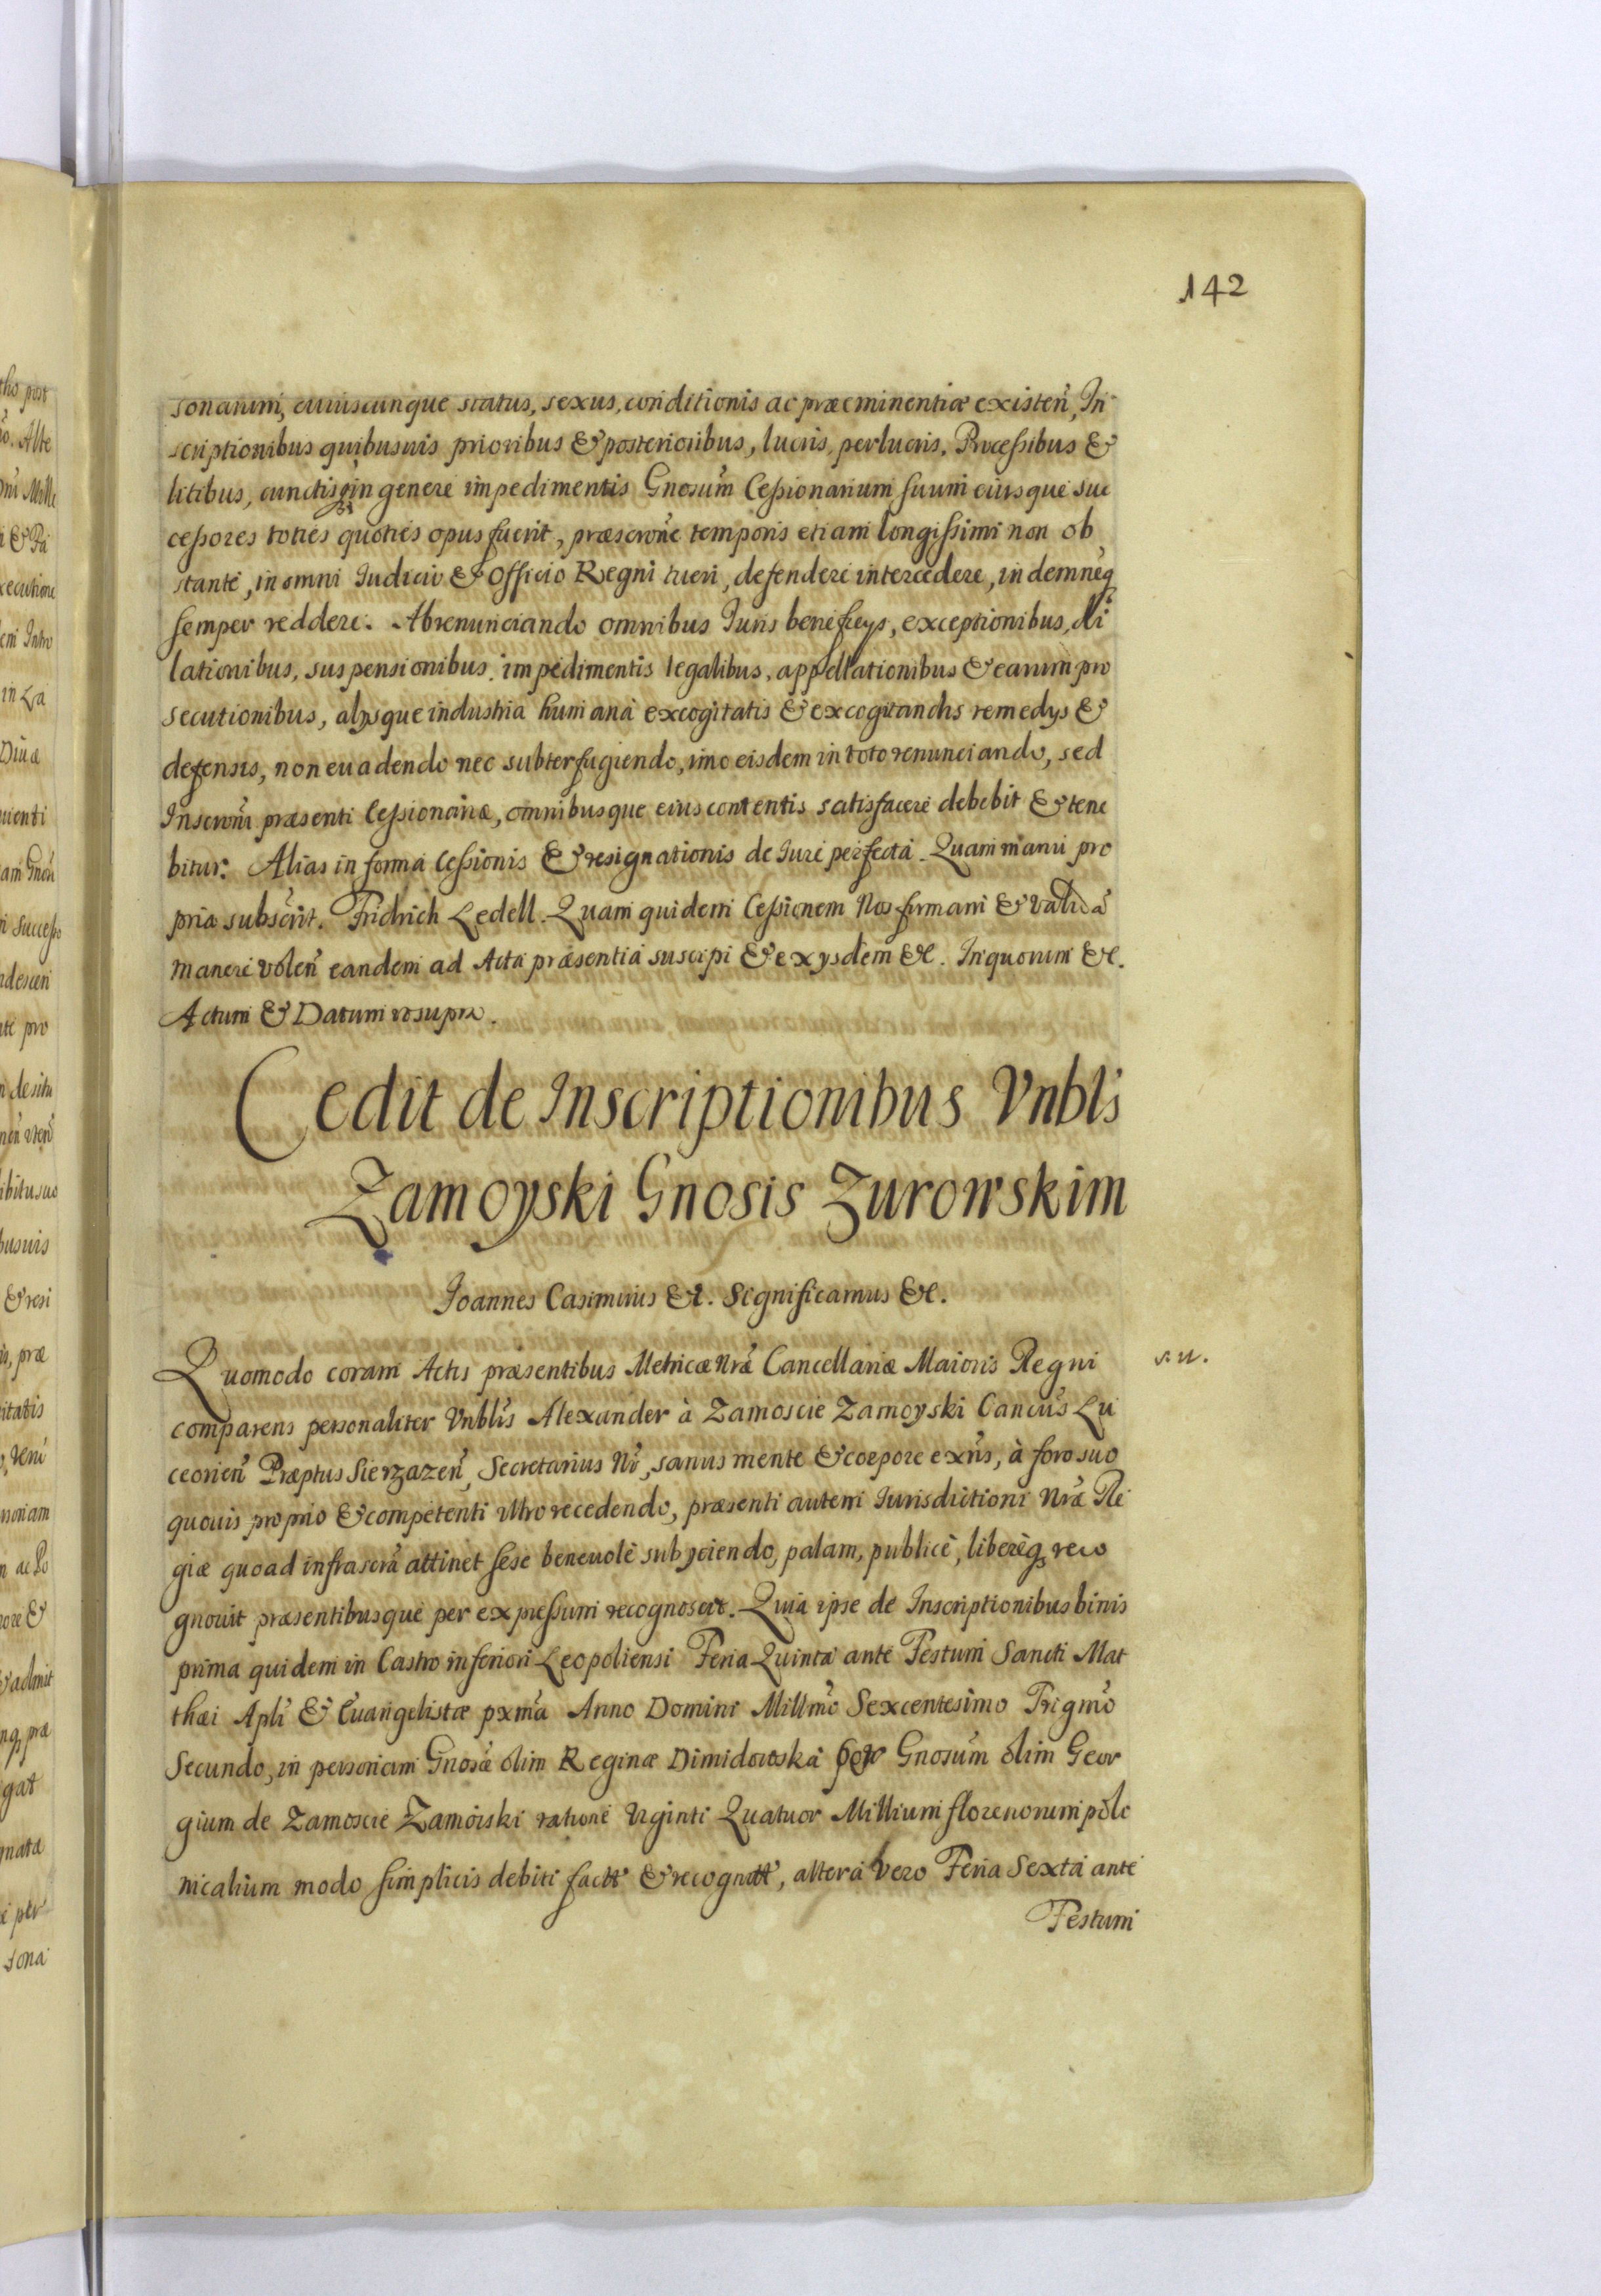 142
sonarum, cuiuscunque status, sexus, conditionis ac præeminentiæ existen, In
scriptionibus quibusuis prioribus & posterioribus, lucris, perlucris, Processibus &
litibus, cunctisq in genere impedimentis Gnosum Cessionarium suum eiusque suc
cessores toties quoties opus fuerit, præscrone temporis etiam longissimi non ob
stante, in omni Iudicio & Officio Regni tueri, defendere intercedere, indemneq
semper reddere. Abrenunciando omnibus Iuris beneficys, exceptionibus, di
lationibus, suspensionibus, impedimentis legalibus, appellationibus & earum pro
secutionibus, alysque industria humana excogitatis & excogitandis remedys &
defensis, non euadendo nec subterfugiendo, imo eisdem in toto renunciando, sed
Inscroni præsenti Cessionariæ, omnibusque eius contentis satisfacere debebit & tene
bitur. Alias in forma Cessionis & resignationis de Iure perfecta. Quam manu pro
pria subscrit. Fridrich Ledell. Quam quidem Cessionem Nos firmam & valida
manere volen eandem ad Acta præsentia suscipi & ex ysdem &c. In quorum &c.
Actum & Datum ut supra.
Cedit de Inscriptionibus Vnblis
Zamoyski Gnosis Zurowskim
Ioannes Casimirus &c. Significamus &c.
Quomodo coram Actis præsentibus Metricæ Nræ Cancellariæ Maioris Regni
comparens personaliter Vnblis Alexander à Zamoscie Zamoyski Cancus Lu
ceorien Præptus Sierzazen, Secretarius Nr, sanus mente & corpore exns, à foro suo
quouis proprio & competenti ultro recedendo, præsenti autem Iurisdictioni Nræ Re
giæ quoad infrascra attinet sese beneuole subyciendo, palam, publicè, liberèq reco
gnouit præsentibusque per expressum recognoscit. Quia ipse de Inscriptionibus binis
prima quidem in Castro inferiori Leopoliensi Feria Quinta ante Festum Sancti Mat
thæi Apli & Euangelistæ pxma Anno Domini Millmo Sexcentesimo Trigmo
Secundo, in personam Gnosæ olim Reginæ Dimidowska per Gnosum olim Geor
gium de Zamoscie Zamoiski ratione Viginti Quatuor Millium florenorum polo
nicalium modo simplicis debiti fact & recognit, altera vero Feria Sexta ante
Festum